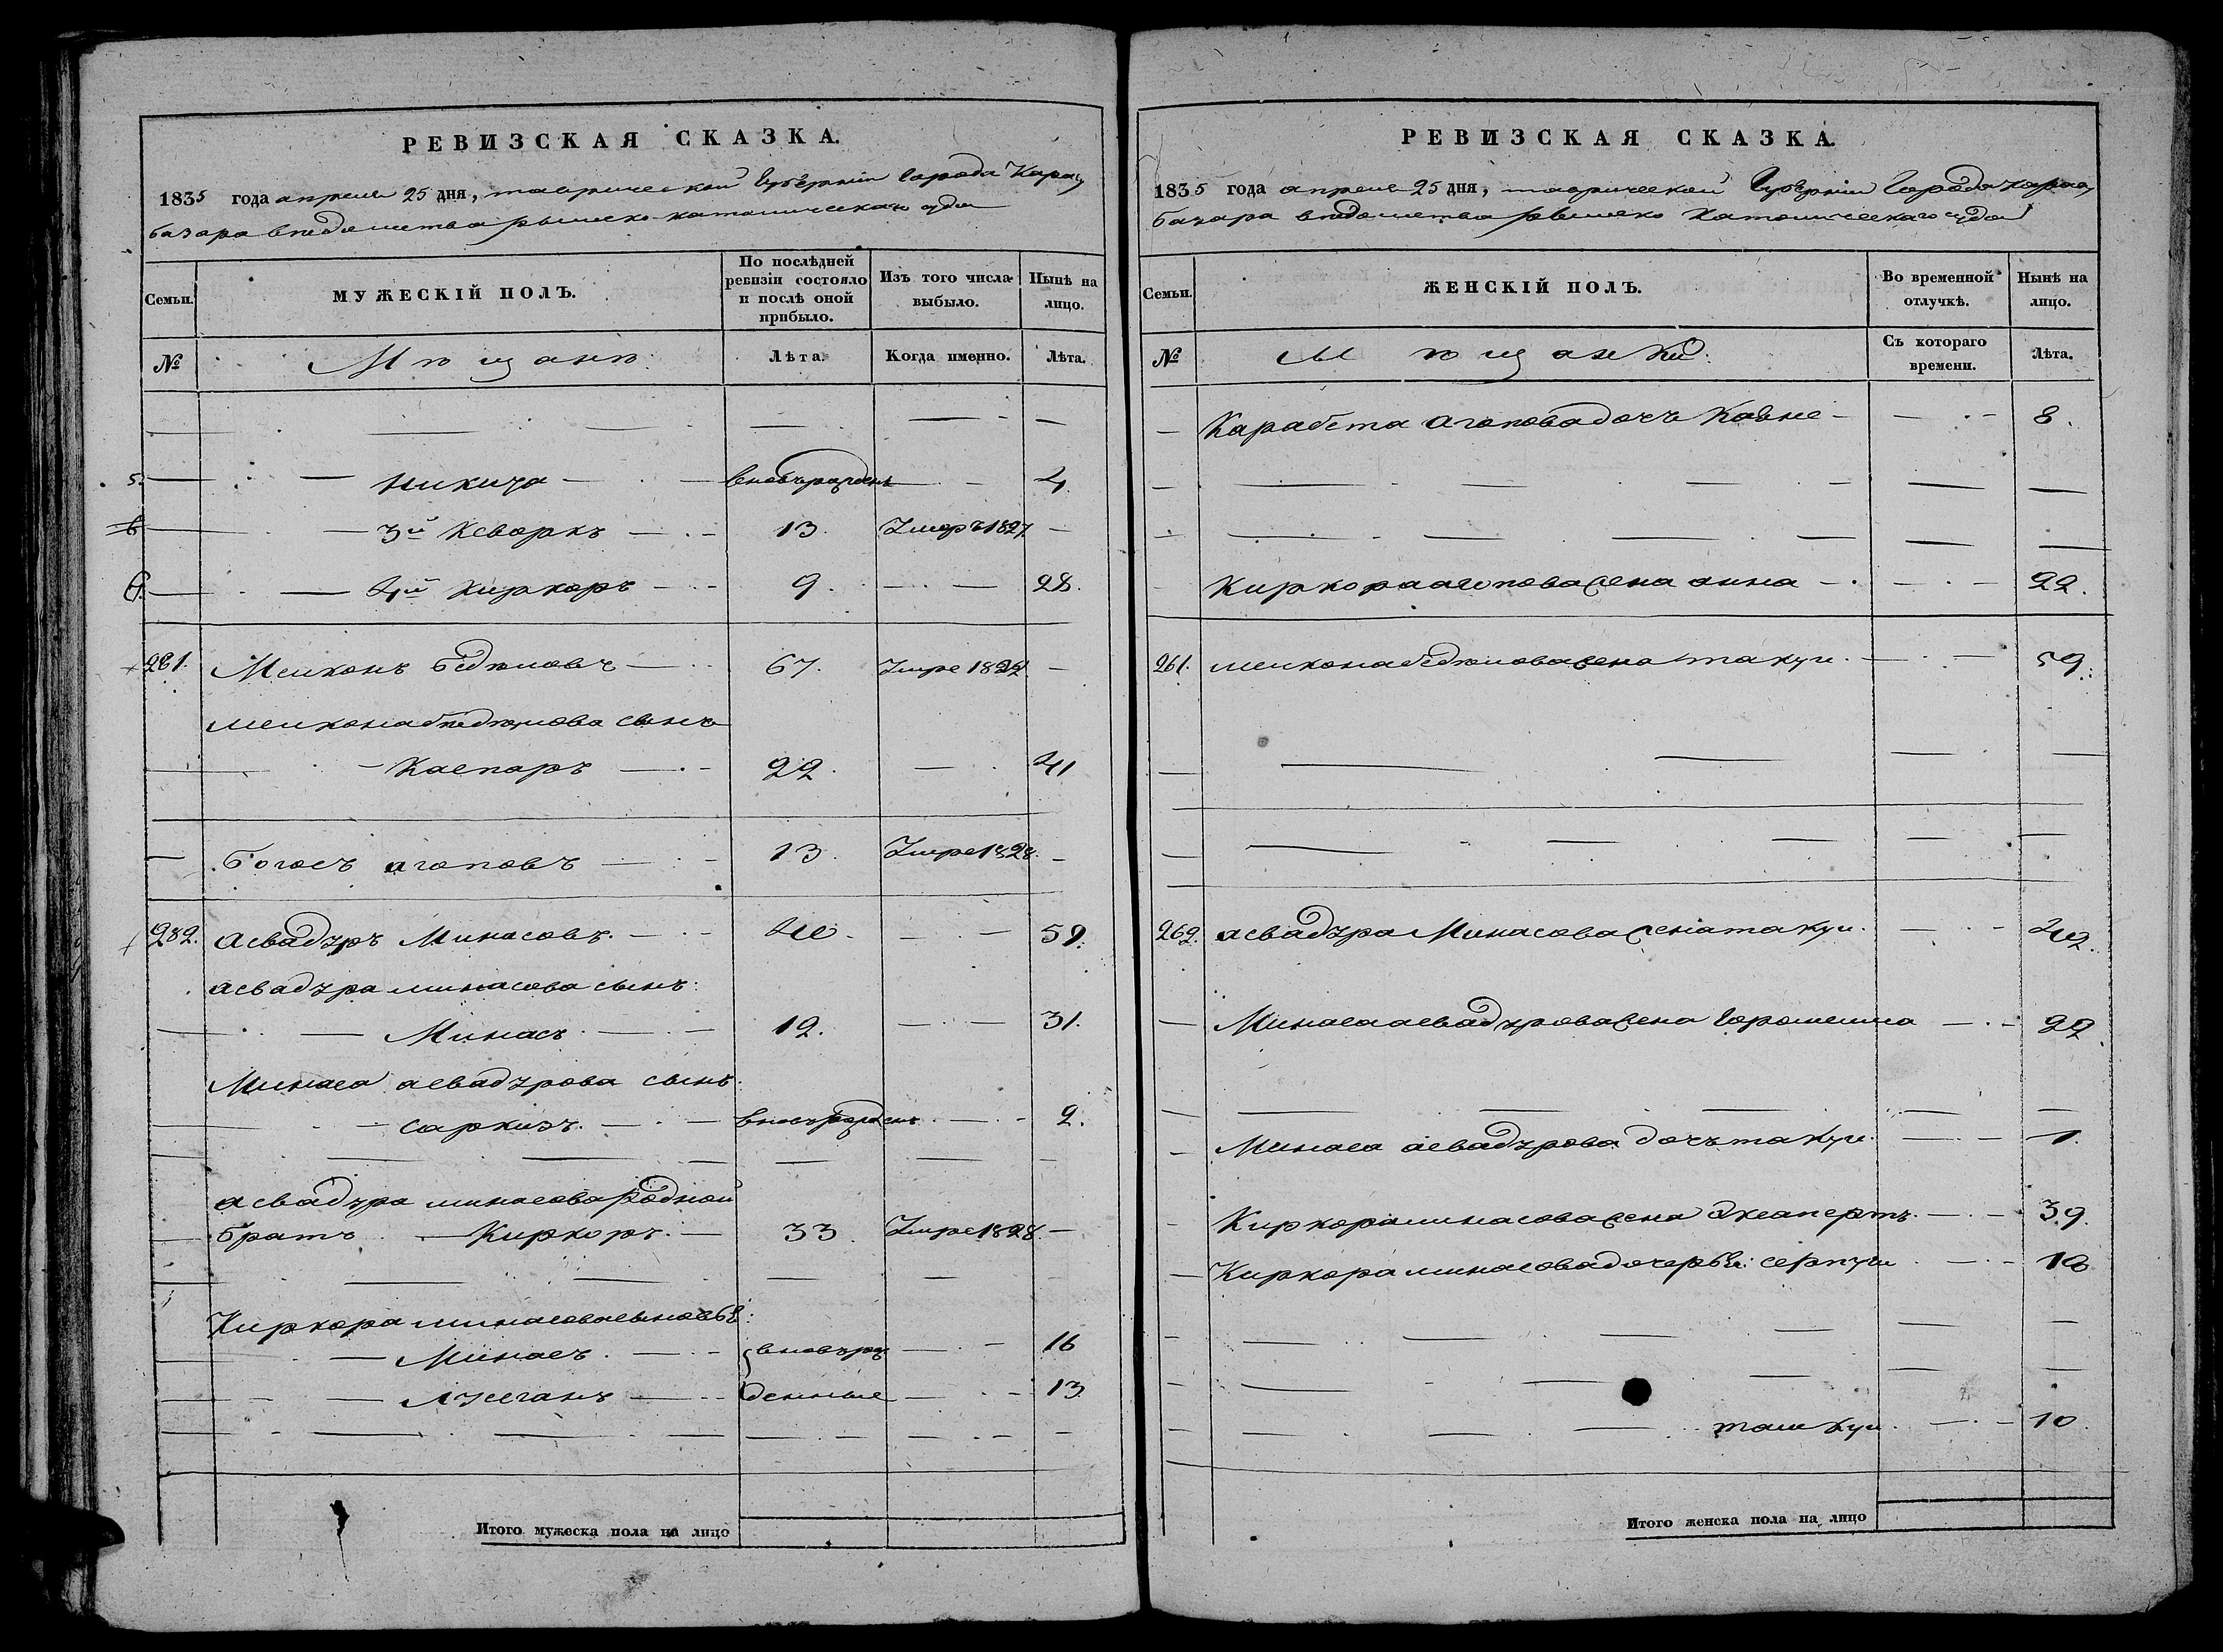 РЕВИЗСКАЯ СКАЗКА.
1835 года апреля 25 дня, таврической Губерніи города Карасу
базара вѣдомства рымско-католическаго суда
Семьи.
МУЖЕСКІЙ ПОЛЪ.
По послѣдней ревизіи состояло и послѣ оной прибыло.
Изъ того числа выбыло.
Нынѣ на лицо.
№
Мѣщанѣ
Лѣта.
Когда именно.
Лѣта.
5. Никиза вновьрожденъ 4.
6 3й Кеворкъ 13. Умеръ 1827.
6. 4й Киркоръ 9. 28.
281. Мелконъ 67. Умре
Мелкона сынъ
Каспаръ 22. 41
Богосъ агоповъ 13. Умре 1828.
282. асвадуръ Минасовъ. 40. 59.
асвадура минасова сынъ:
Минасъ 12. 31.
Минаса асвадурова сынъ.
саркизъ вновьрожденъ 2.
асвадура минасова родной
братъ Киркоръ. 33. Умре 1828.
Киркора минасова сыновья:
Минасъ. вновьрож 16
денные 13
Итого мужеска пола на лицо
РЕВИЗСКАЯ СКАЗКА.
1835 года апреля 25 дня, таврической Губерніи Города карасу
базара вѣдомства рымско католическаго суда
Семьи.
ЖЕНСКІЙ ПОЛЪ.
Во временной отлучкѣ.
Нынѣ на лицо.
№
мѣщанки
Съ котораго времени.
Лѣта.
Карабета агопова дочъ 8.
Киркора агопова жена анна 22.
261. мелкона жена такуи. 59.
262. асвадура Минасова жена такуи. 42.
Минаса асвадурова жена 22.
Минаса асвадурова дочъ такуи. 1.
Киркора минасова жена 39.
Киркора минасова дочерьи: серпуи 18
10.
Итого женска пола на лицо